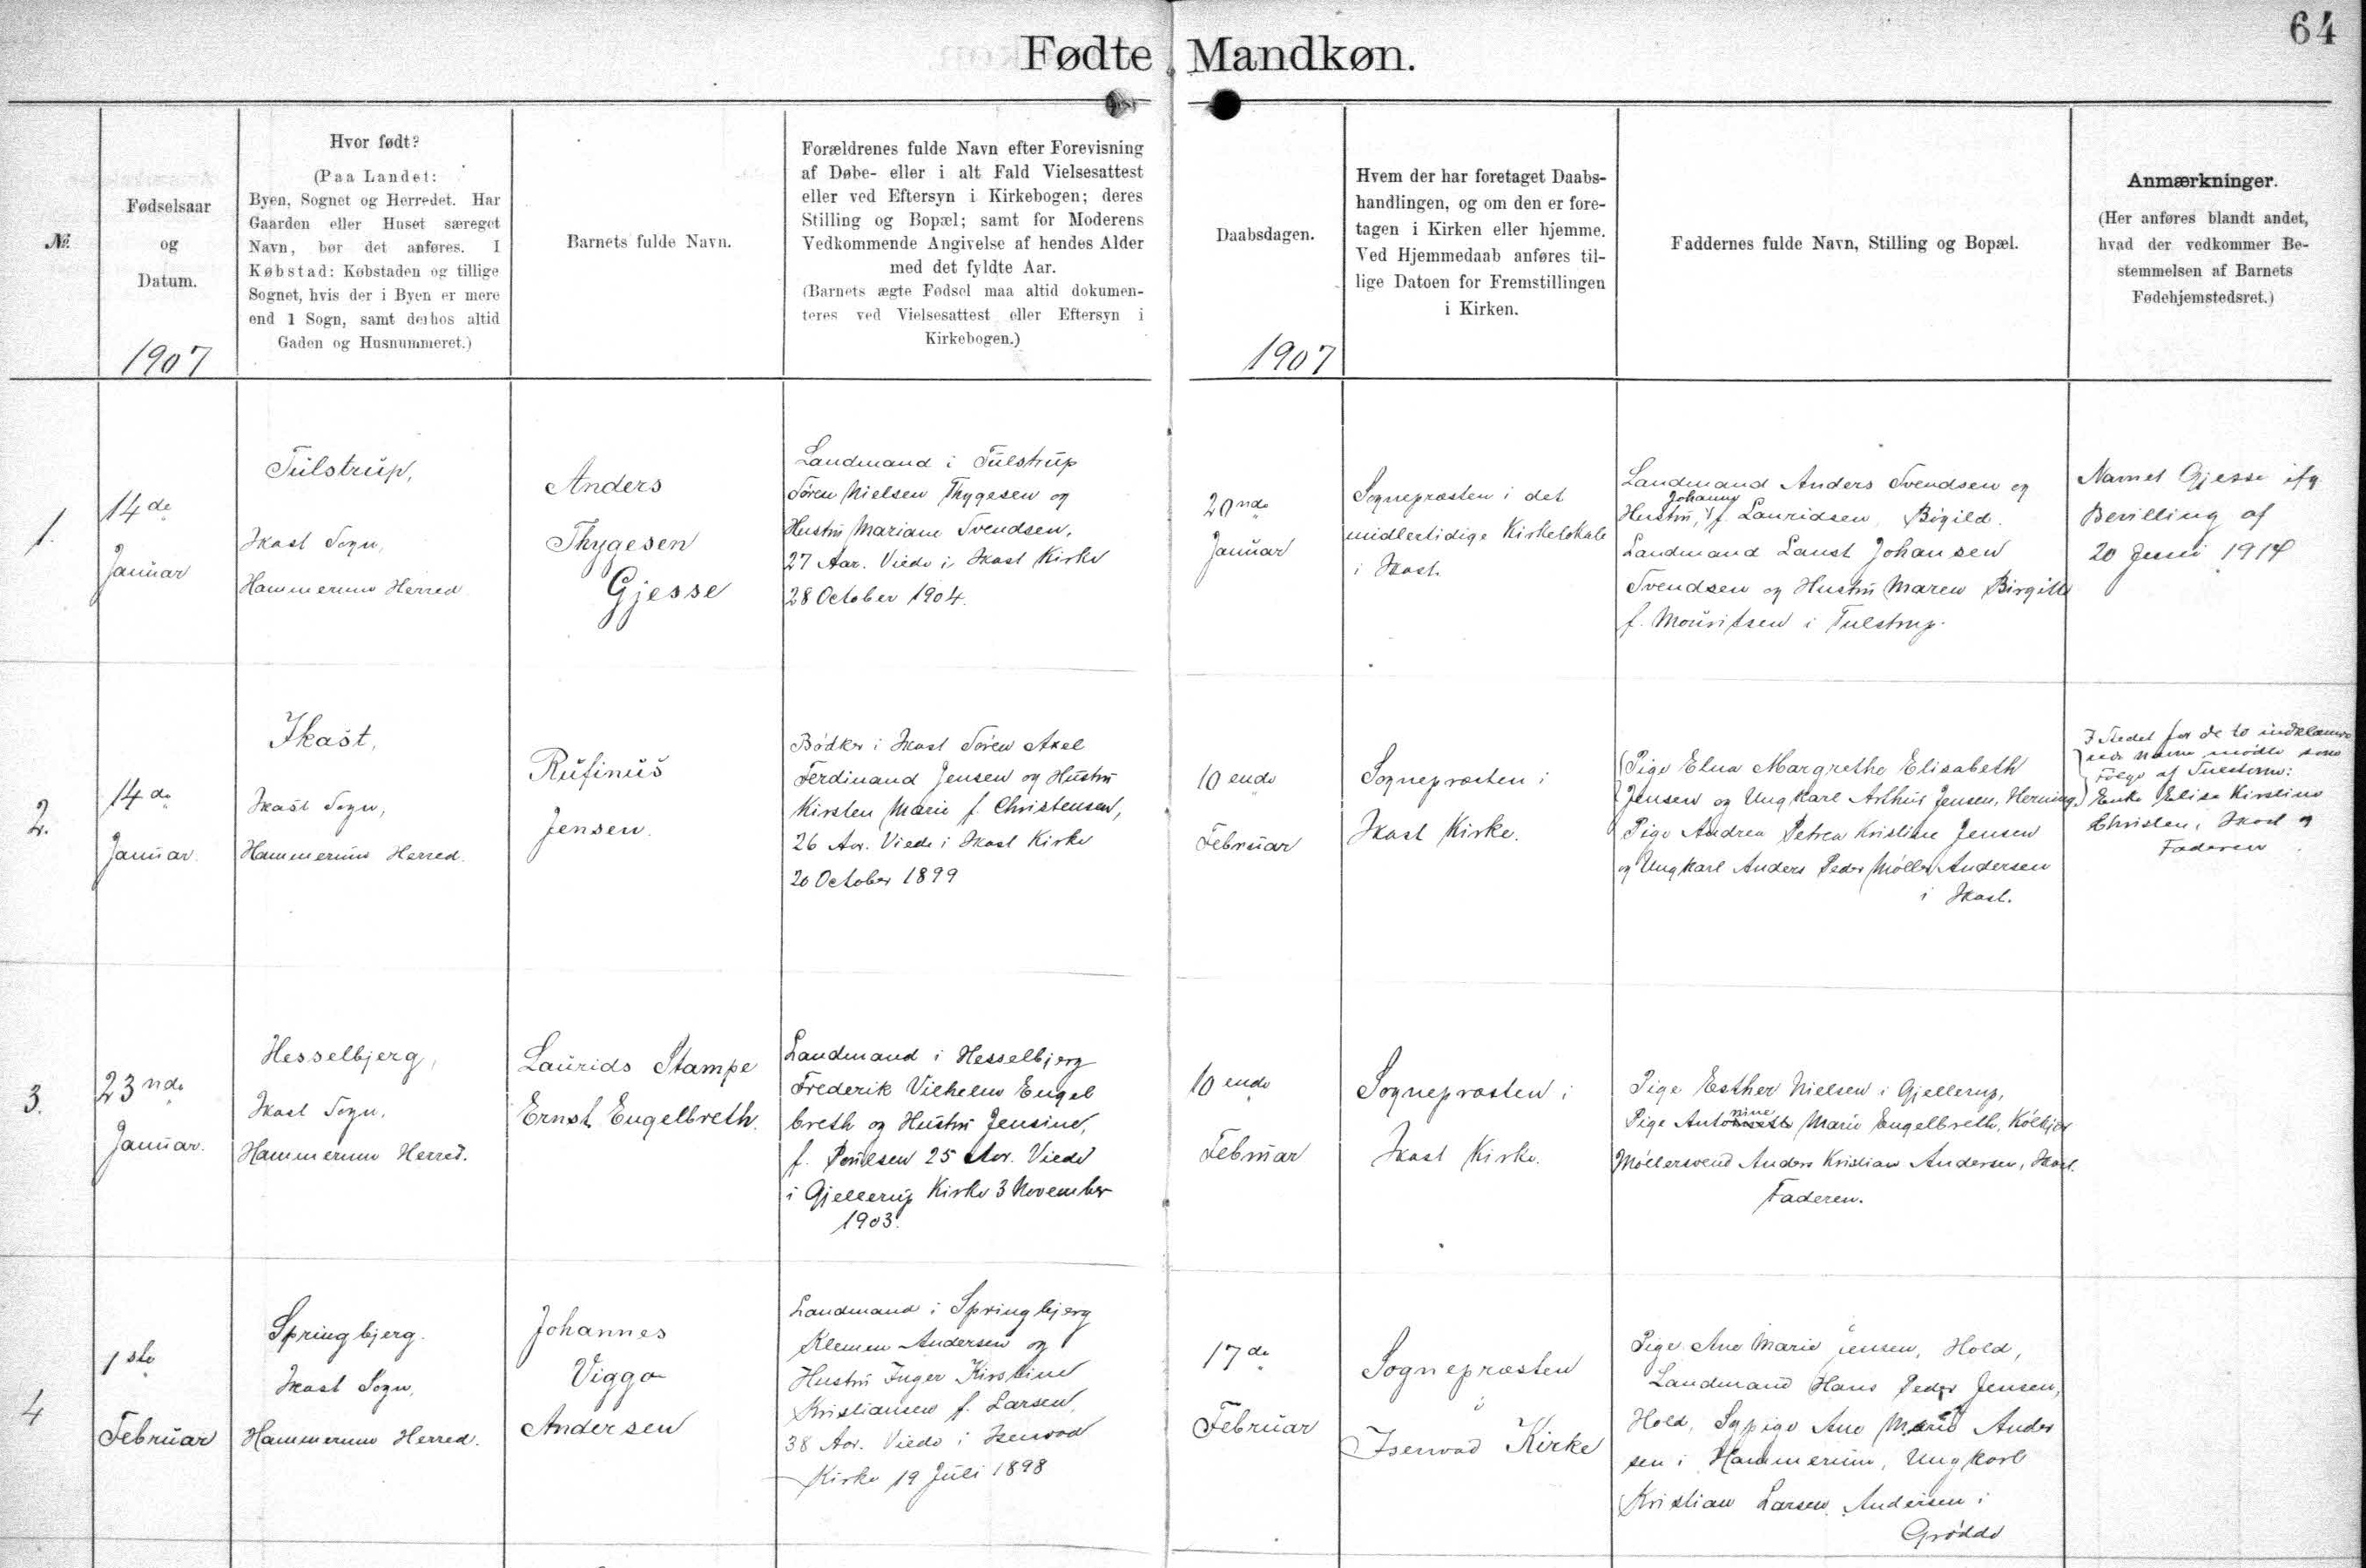 64
Fødte Mandkøn.
№
Fødselsaar
og
Datum.
1907
Hvor født?
(Paa Landet:
Byen, Sognet og Herredet. Har
Gaarden eller Huset særeget
Navn, bør det anføres. I
Købstad: Købstaden og tillige
Sognet, hvis der i Byen er mere
end 1 Sogn, samt derhos altid
Gaden og Husnummeret.)
Barnets fulde Navn.
Forældrenes fulde Navn efter Forevisning
af Døbe- eller i alt Fald Vielsesattest
eller ved Eftersyn i Kirkebogen; deres
Stilling og Bopæl; samt for Moderens
Vedkommende Angivelse af hendes Alder
med det fyldte Aar.
(Barnets ægte Fødsel maa altid dokumen-
teres ved Vielsesattest eller Eftersyn i
Kirkebogen.)
Daabsdagen.
1907
Hvem der har foretaget Daabs-
handlingen, og om den er fore-
tagen i Kirken eller hjemme.
Ved Hjemmedaab anføres til-
lige Datoen for Fremstillingen
i Kirken.
Faddernes fulde Navn, Stilling og Bopæl.
Anmærkninger.
(Her anføres blandt andet,
hvad der vedkommer Be-
stemmelsen af Barnets
Fødehjemstedsret.)
1.
14de
Januar
Tulstrup,
Ikast Sogn,
Hammerum Herred
Anders
Thygesen
Gjesse
Landmand i Tulstrup
Søren Nielsen Thygesen og
Hustru Mariane Svendsen,
27 Aar. Viede i Ikast Kirke
28 October 1904.
20nde
Januar
Sognepræsten i det
midlertidige Kirkelokale
i Ikast.
Landmand Anders Svendsen og
Hustru, Johanne f. Lauridsen, Bøgild.
Landmand Laust Johansen
Svendsen og Hustru Maren Birgitte
f. Mouritsen i Tulstrup.
Navnet Gjesse ifg.
Bevilling af
20 Juni 1914
2.
14de
Januar.
Ikast,
Ikast Sogn,
Hammerum Herred.
Rufinus
Jensen.
Bødker i Ikast Søren Axel
Ferdinand Jensen og Hustru
Kirsten Marie f. Christensen,
26 Aar. Viede i Ikast Kirke
20 October 1899
10ende
Februar
Sognepræsten i
Ikast Kirke.
Pige Elna Margrethe Elisabeth
Jensen og Ungkarl Arthur Jensen, Herning,
Pige Andrea Petrea Kristine Jensen
og Ungkarl Anders Peder Møller Andersen
i Ikast.
I Stedet for de to indklamre
mødte som
Følge af
Enke Elise Kirstine
Christen, Ikast og
Faderen
3.
23nde
Januar.
Hesselbjerg,
Ikast Sogn.
Hammerum Herred.
Laurids Stampe
Ernst Engelbreth.
Landmand i Hesselbjerg
Frederik Vilhelm Engel
breth og Hustru Jensine,
f. Poulsen 25 Aar. Viede
i Gjellerup Kirke 3 November
1903.
10ende
Februar
Sognepræsten i
Ikast Kirke.
Pige Esther Nielsen i Gjellerup,
Pige Antonine Marie Engelbreth, Kølkjær
Møllersvend Anders Kristian Andersen, Ikast.
Faderen.
4
1ste
Februar
Springbjerg.
Ikast Sogn,
Hammerum Herred.
Johannes
Viggo
Andersen
Landmand i Springbjerg
Klemen Andersen og
Hustru Inger Kirstine
Kristiansen f. Larsen,
38 Aar. Viede i Isenvad
Kirke 19 Juli 1898
17de
Februar
Sognepræsten
i
Isenvad Kirke
Pige Ane Marie Jensen, Hold,
Landmand Hans Peder Jensen,
Hold, Sypige Ane Marie Ander
sen i Hammerum, Ungkarl
Kristian Larsen Andersen i
Grødde